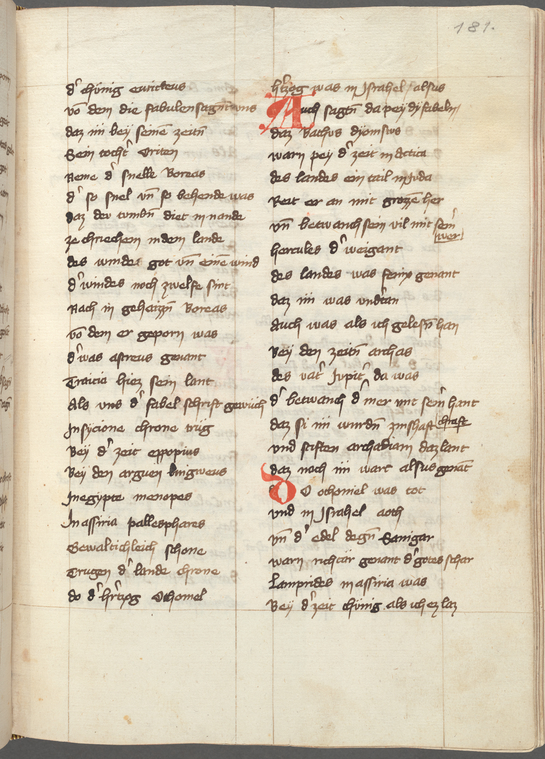 181.
d' chünig euricteus
vō dem die fabulen sagnt uns
daz im bey seinē zeitn̄
Sein tocht' Oriten
Neme d' snelle Boreas
d' so snel vn̄ so behende was
daz der tumbn̄ diet in nande
ze chriechem in dem lande
des windes got vn̄ eine wind
d' windes noch zwelfe sint
Nach in gehaizzn̄ Boreas
vō dem er geporn was
d' was astreus genant
Tracia hiez sein lant
Als vns d' fabel schrift gewieh
In sycione chrone trüg
Bey d' zeit epopius
Bey den arguen
In egypte menopes
In assiria pallesphares
Gewaltichleich schone
Trugen d' lande chrone
do d' h'rtzog Othoniel
h'tzog was in Israhel / alsus
Auch sagtn̄ da pey dy fabeln
daz Bachus dyonisus
warn pey d' zeit in
des landes ein tail in India
Reit er an mit grozze her
vn̄ betwanch sein vil mit sein
wer
hercules d' weigant
des landes was fenix genant
daz im was vndtan
Auch was als ich gelesn̄ han
Bey den zeitn̄ archas
des vat' Iupit' da was
d' betwanch d' mer mit sein hant
daz si im wurdn̄ zinshaft
vnd stiften archadiam daz lant
daz noch im wart alsus genāt
DO othoniel was tot
vnd in Israhel aoth
vn̄ d' edel degn̄ Samgar
warn richtär genant d' gotes schar
Lamprides in assiria was
Bey d' zeit chünig als ich ez laz